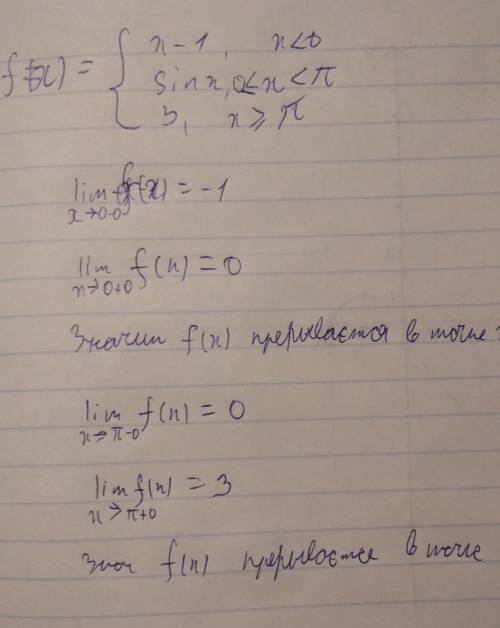 f(x) = { x-1, x<0
sin x, 0≤x<π
3, x≥π
lim f(x) = -1
x→0-0
lim f(x) = 0
x→0+0
Значит f(x) прерывается в точке
lim f(x) = 0
x→π-0
lim f(x) = 3
x→π+0
Знач f(x) прерывается в точке